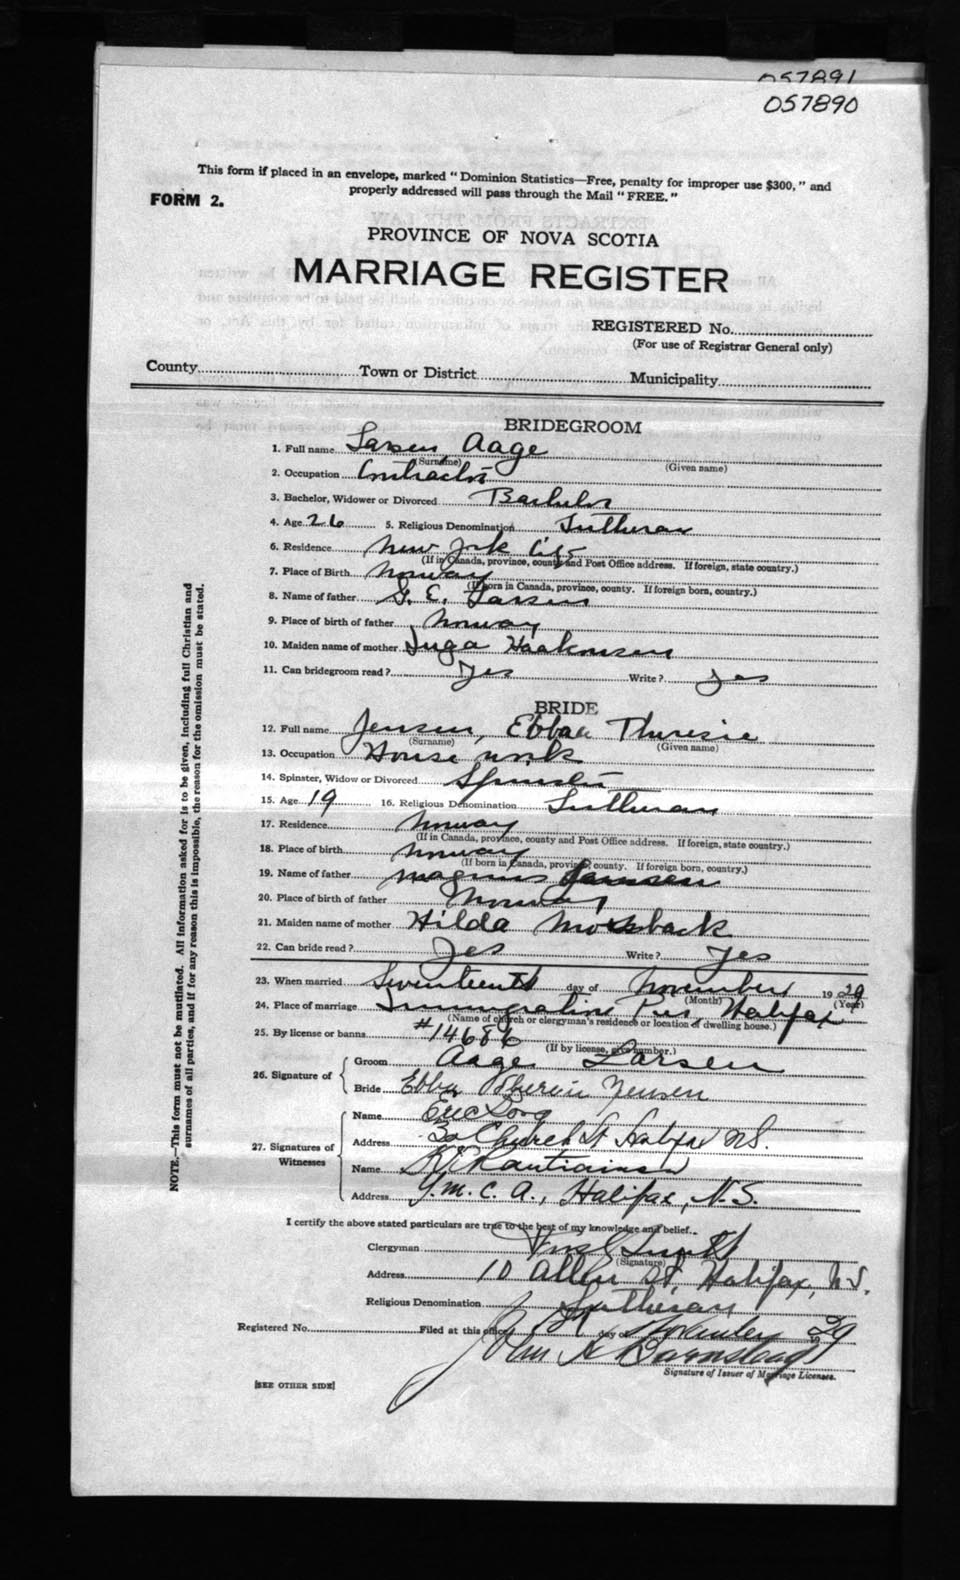 057891
057890
This form if placed in an envelope, marked "Dominion Statistics—Free, penalty for improper use $300," and
properly addressed will pass through the Mail "FREE."
FORM 2.
PROVINCE OF NOVA SCOTIA
MARRIAGE REGISTER
REGISTERED No.
(For use of Registrar General only)
County Town or District Municipality
BRIDEGROOM
1. Full name Larsen, Aage
(Surname) (Given name)
2. Occupation Contractor
3. Bachelor, Widower or Divorced Bachelor
4. Age 26 5. Religious Denomination Lutheran
6. Residence New York City
(If in Canada, province, county and Post Office address. If foreign, state country.)
7. Place of Birth Norway
(If born in Canada, province, county. If foreign born, country.)
8. Name of father G. E. Larsen
9. Place of birth of father Norway
10. Maiden name of mother Inga Haakonsen
11. Can bridegroom read? Yes Write? Yes
BRIDE
12. Full name Jensen, Ebba Theresie
(Surname) (Given name)
13. Occupation House work
14. Spinster, Widow or Divorced Spinster
15. Age 19 16. Religious Denomination Lutheran
17. Residence Norway
(If in Canada, province, county and Post Office address. If foreign, state country.)
18. Place of birth Norway
(If born in Canada, province, county. If foreign born, country.)
19. Name of father Magnus Jensen
20. Place of birth of father Norway
21. Maiden name of mother Hilda
22. Can bride read? Yes Write? Yes
23. When married Seventeenth day of November 1929
(Month) (Year)
24. Place of marriage Immigration Pier, Halifax
(Name of church or clergyman's residence or location of dwelling house.)
25. By license or banns #14686
(If by license, give number.)
26. Signature of
Groom Aage Larsen
Bride Ebba Jensen
27. Signatures of Witnesses
Name Eric
Address Church St Halifax NS.
Name
Address Y.M.C.A., Halifax, N.S.
I certify the above stated particulars are true to the best of my knowledge and belief.
Clergyman
(Signature)
Address 10 Allen St, Halifax, N.S.
Religious Denomination Lutheran
Registered No. Filed at this office day of November 29
John
Signature of Issuer of Marriage Licenses.
[SEE OTHER SIDE]
NOTE.—This form must not be mutilated. All information asked for is to be given, including full Christian and
surnames of all parties, and if for any reason this is impossible, the reason for the omission must be stated.